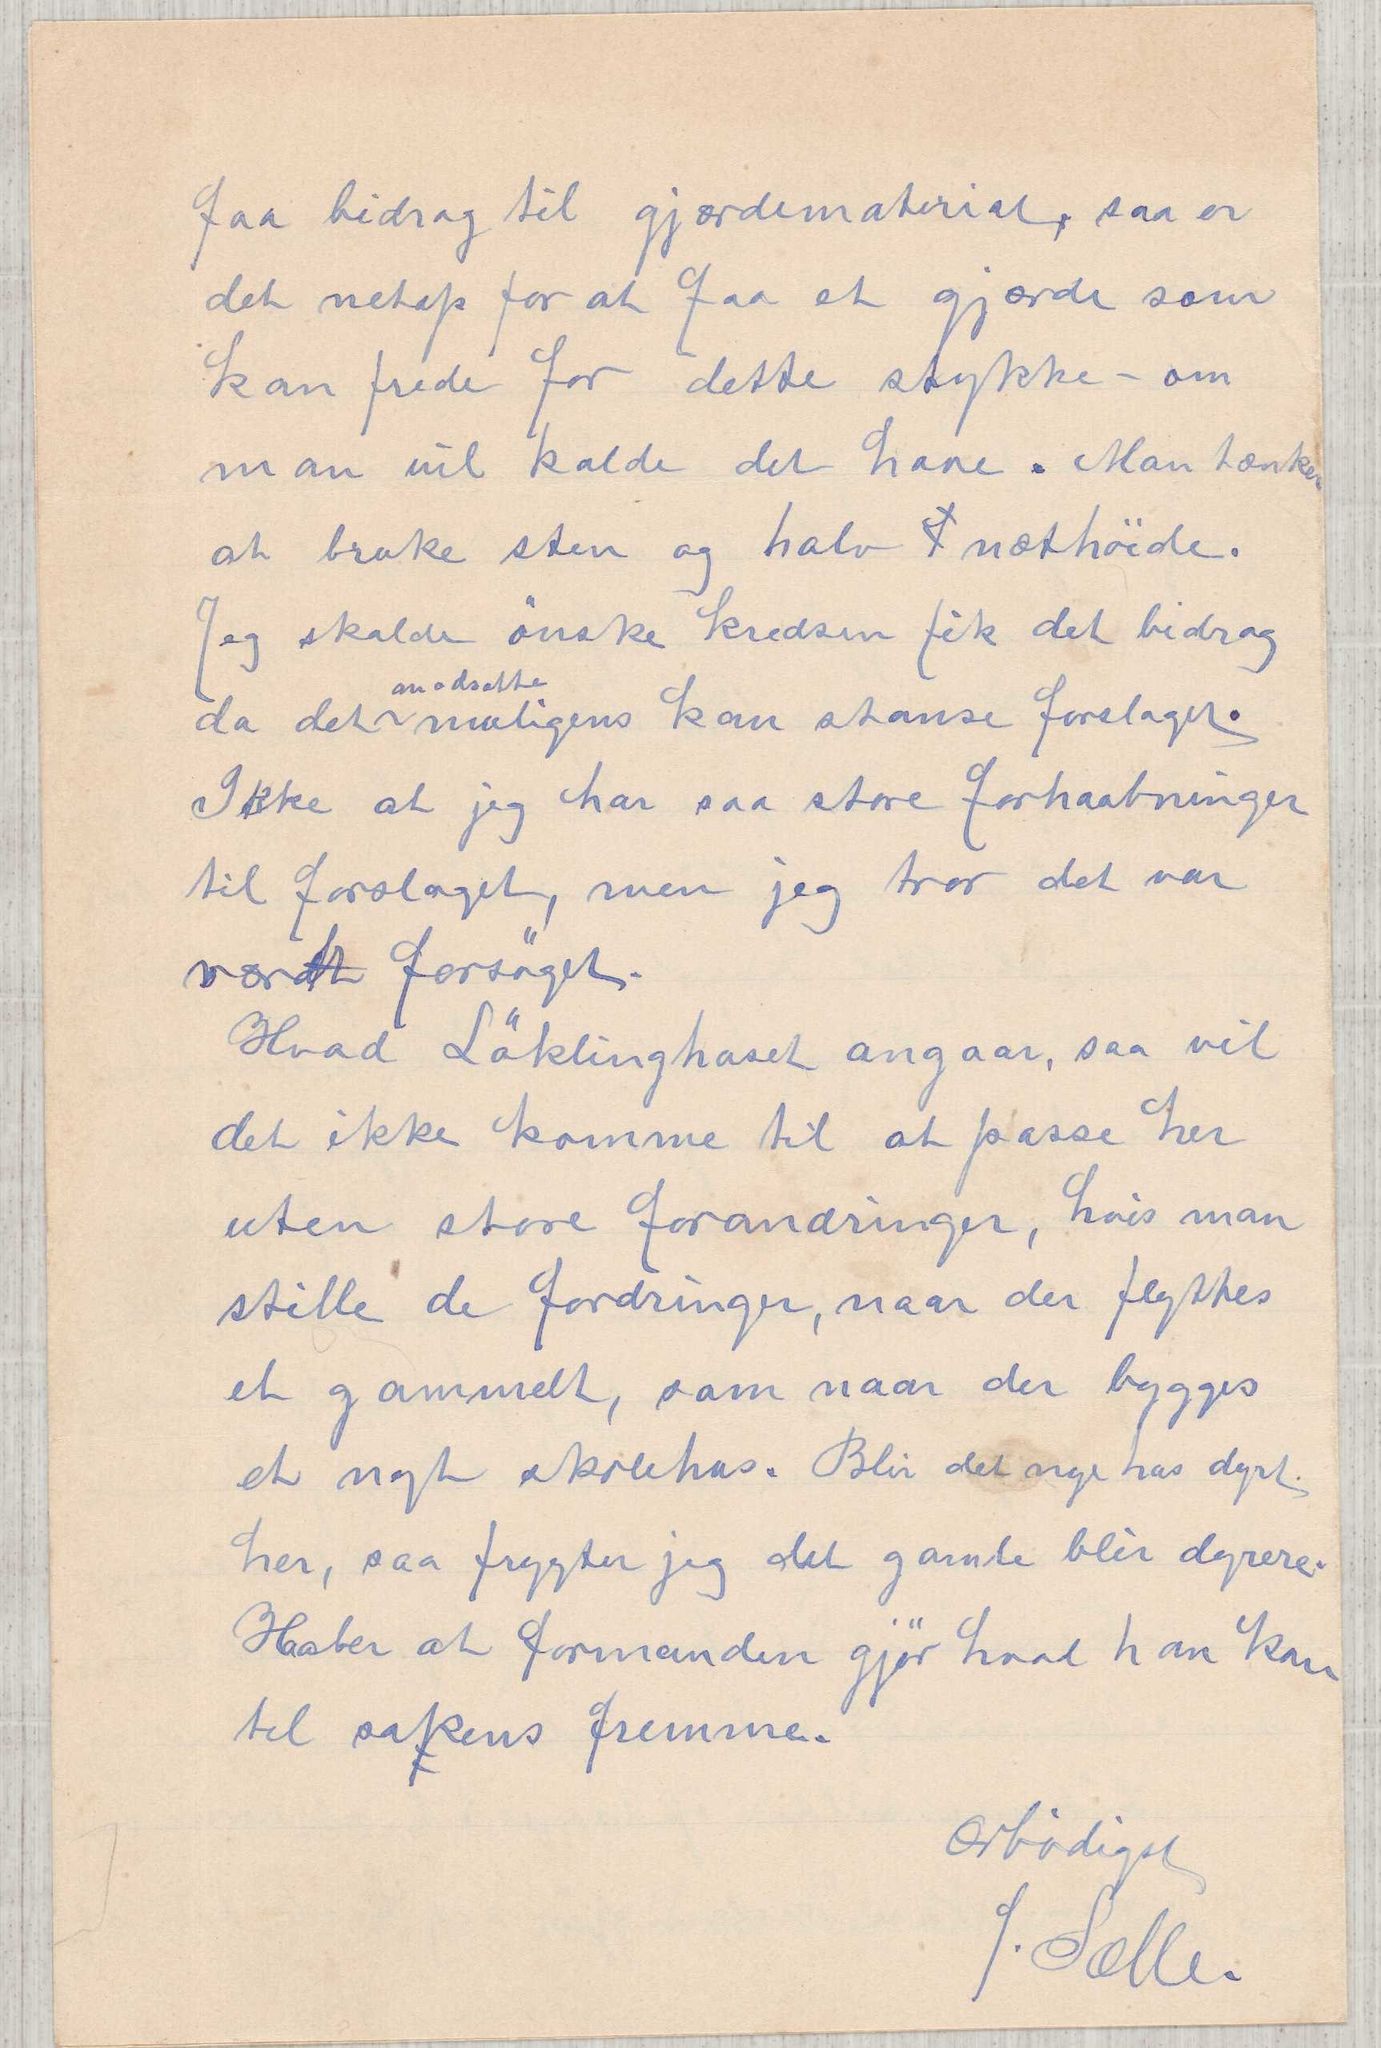 faa bidrag til gjærdemateriat, saa er
det netop for at faa et gjærde som
kan frede for dette stykke - om
man vil kalde det have. Man tænker
at bruke sten og halv næthöide.
Jeg skulde önske kredsen fik det bidrag
modsatte
da det muligens kan stanse forslaget.
Ikke at jeg har saa store forhaabninger
til forslaget, men jeg tror det var
værdt forsöget.
Hvad Löklinghuset angaar, saa vil
det ikke komme til at passe her
uten store forandringer, hvis man
stille de fordringer, naar der flyttes
et gammelt, som naar der bygges
et nyt skolehus. Blir det nye hus dyrt
her, saa frygter jeg det gamle blir dyrere.
Haaber at formanden gjör hvad han kan
til sakens fremme.
Ærbödigst
J. Sælle.